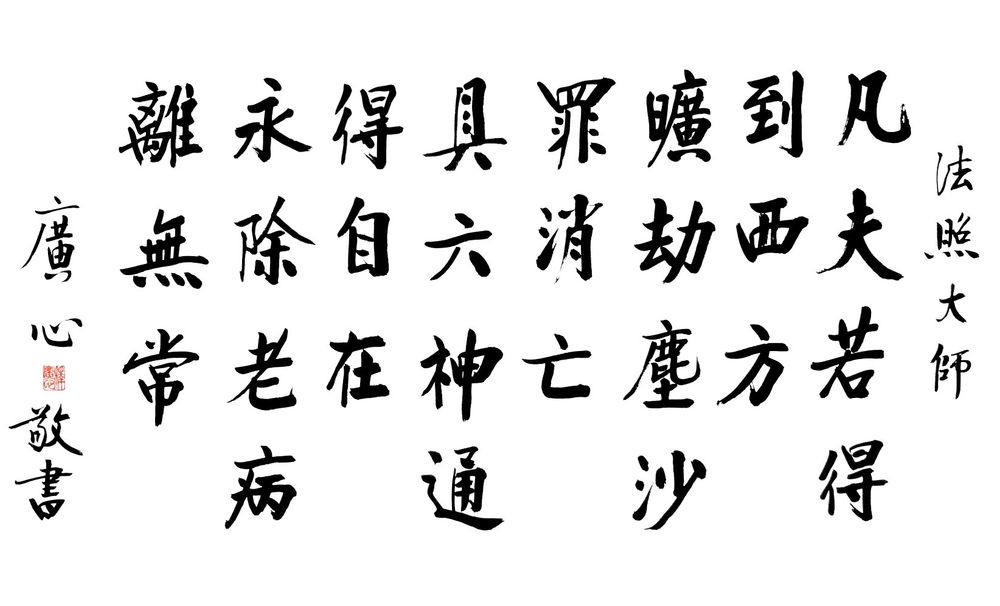 法照大師
凡夫若得
到西方
曠劫塵沙
罪消亡
具六神通
得自在
永除老病
離無常
廣心
敬書